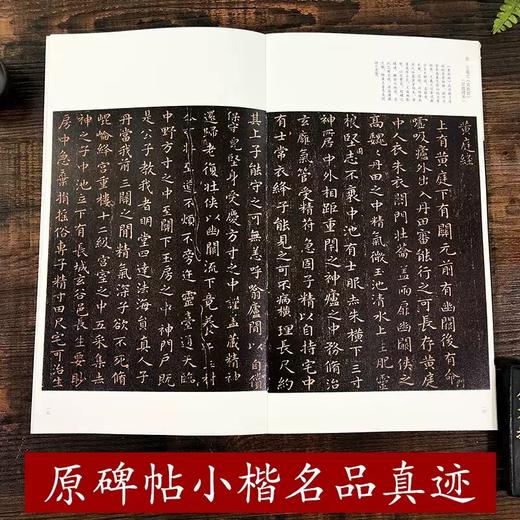 黄庭經
上有黄庭下有關元前有幽闕後有命門
噓吸廬外出入丹田審能行之可長存黄庭
中人衣朱衣關門壯蘥蓋兩扉幽闕俠之
高巍巍丹田之中精氣微玉池清水上生肥靈
根堅志不衰中池有士服赤朱橫下三寸
神所居中外相距重閉之神廬之中務脩治
玄廱氣管受精符急固子精以自持宅中
有士常衣絳子能見之可不病橫理長尺約
其上子能守之可無恙呼噏廬閒以自償
保守完堅身受慶方寸之中謹蓋藏精神
還歸老復壯俠以幽闕流下竟養子玉樹
可杖至道不煩不旁迕靈臺通天臨
中野方寸之中至關下玉房之中神門戶既
是公子教我者明堂四達法海員真人子
丹當我前三關之間精氣深子欲不死脩
崐崘絳宮重樓十二級宮室之中五采集赤
神之子中池立下有長城玄谷邑長生要眇
房中急棄捐搖俗專子精寸田尺宅可治生
原碑帖小楷名品真迹